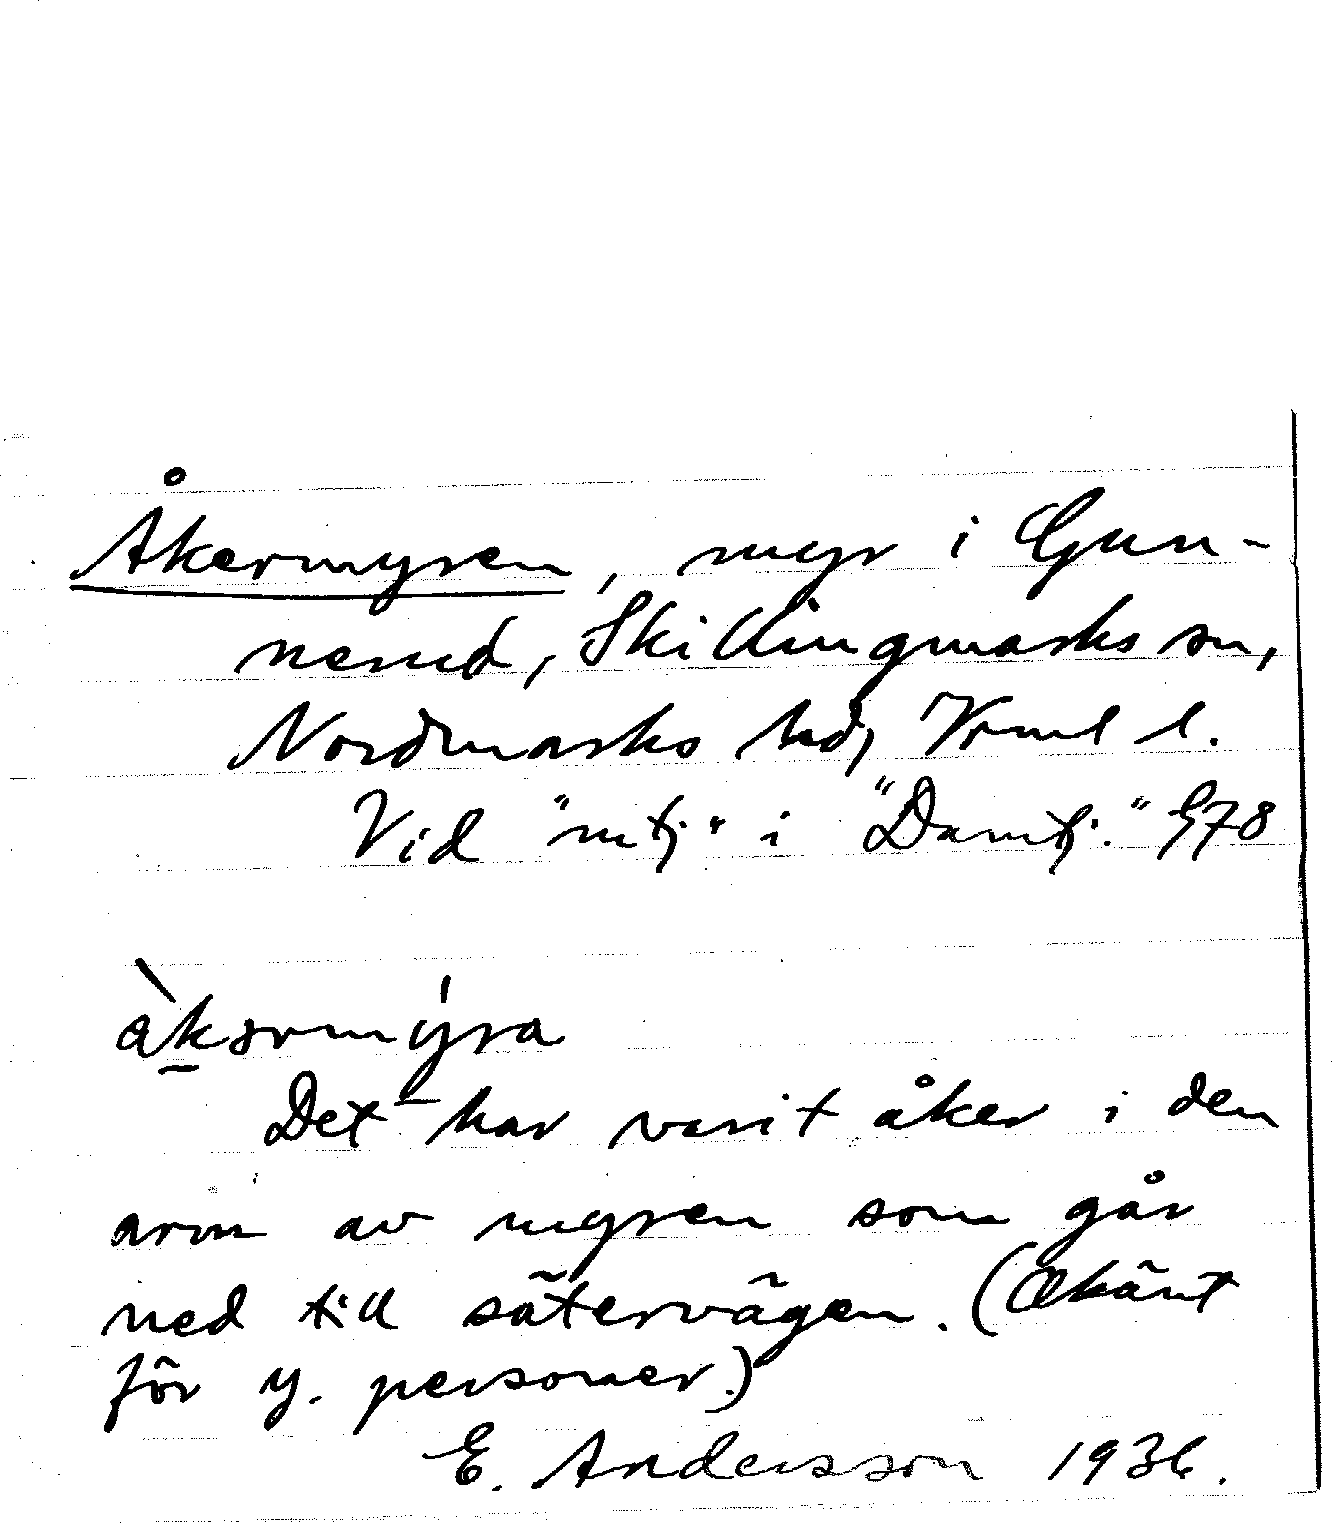 Åkermyren, myr i Gun-
nerud, Skillingmarks sn,
Nordmarks hd, Vrml l.
Vid "mtj" i "Damtj." G78
àkərmýra
Det har varit åker i den
arm av myren som går
ned till sätervägen. (Okänt
för y. personer.)
E. Andersson 1936.